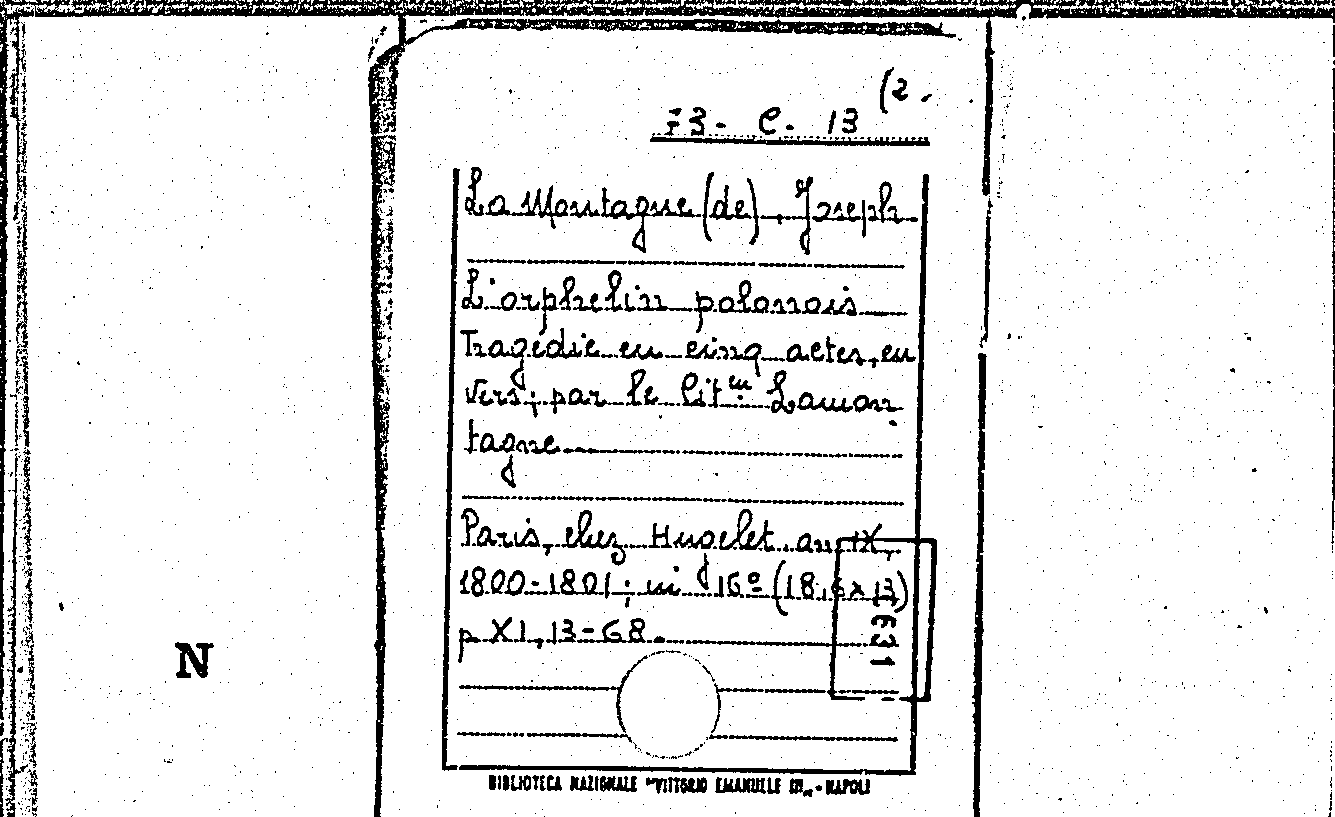 (2.
73- C. 13
La Montagne (de), Joseph
L'orphelin polonois
Tragédie en cinq actes, en
vers; par le Cit.en Lamon
tagne...
Paris, chez Hugelet an IX,
1800-1801; in 16º (18,5x13)
p XI, 13-68.
N
BIBLIOTECA NAZIONALE "VITTORIO EMANUELE III" - NAPOLI